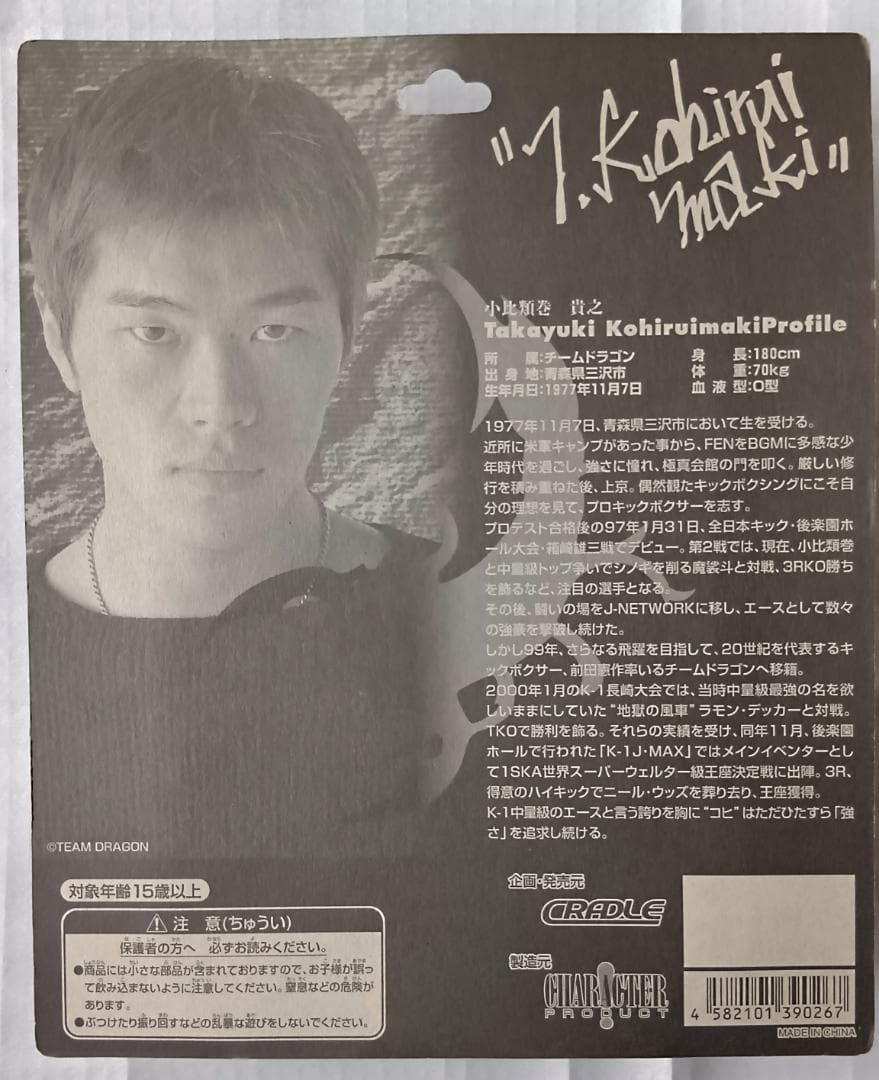 "T.Kohirui
maki"
小比類巻 貴之
Takayuki KohiruimakiProfile
所 属:チームドラゴン 身 長:180cm
出 身 地:青森県三沢市 体 重:70kg
生年月日:1977年11月7日 血 液 型:O型
1977年11月7日、青森県三沢市において生を受ける。
近所に米軍キャンプがあった事から、FENをBGMに多感な少
年時代を過ごし、強さに憧れ、極真会館の門を叩く。厳しい修
行を積み重ねた後、上京。偶然観たキックボクシングにこそ自
分の理想を見て、プロキックボクサーを志す。
プロテスト合格後の97年1月31日、全日本キック・後楽園ホ
ール大会・箱崎雄三戦でデビュー。第2戦では、現在、小比類巻
と中量級トップ争いでシノギを削る魔裟斗と対戦、3RKO勝ち
を飾るなど、注目の選手となる。
その後、闘いの場をJ-NETWORKに移し、エースとして数々
の強豪を撃破し続けた。
しかし99年、さらなる飛躍を目指して、20世紀を代表するキ
ックボクサー、前田憲作率いるチームドラゴンへ移籍。
2000年1月のK-1長崎大会では、当時中量級最強の名を欲
しいままにしていた“地獄の風車”ラモン・デッカーと対戦。
TKOで勝利を飾る。それらの実績を受け、同年11月、後楽園
ホールで行われた「K-1J・MAX」ではメインイベンターとし
て1SKA世界スーパーウェルター級王座決定戦に出陣。3R、
得意のハイキックでニール・ウッズを葬り去り、王座獲得。
K-1中量級のエースと言う誇りを胸に“コヒ”はただひたすら「強
さ」を追求し続ける。
©TEAM DRAGON
対象年齢15歳以上
⚠注 意(ちゅうい)
保護者の方へ 必ずお読みください。
●商品には小さな部品が含まれておりますので、お子様が誤っ
て飲み込まないように注意してください。窒息などの危険が
あります。
●ぶつけたり振り回すなどの乱暴な遊びをしないでください。
企画・発売元
CRADLE
製造元
CHARACTER
PRODUCT
4 582101 390267
MADE IN CHINA